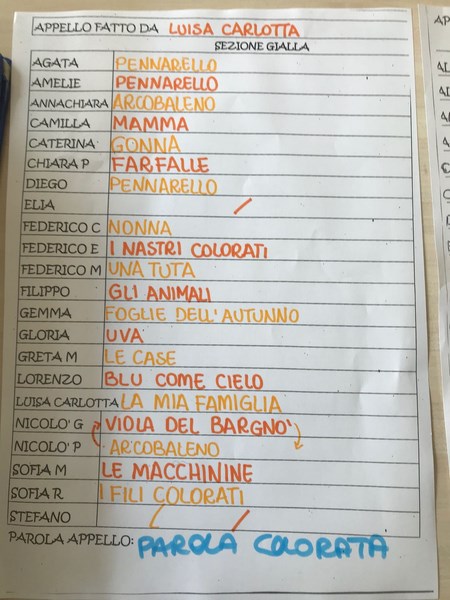 APPELLO FATTO DA LUISA CARLOTTA
SEZIONE GIALLA
AGATA PENNARELLO
AMELIE PENNARELLO
ANNACHIARA ARCOBALENO
CAMILLA MAMMA
CATERINA GONNA
CHIARA P FARFALLE
DIEGO PENNARELLO
ELIA
FEDERICO C NONNA
FEDERICO E I NASTRI COLORATI
FEDERICO M UNA TUTA
FILIPPO GLI ANIMALI
GEMMA FOGLIE DELL'AUTUNNO
GLORIA UVA
GRETA M LE CASE
LORENZO BLU COME CIELO
LUISA CARLOTTA LA MIA FAMIGLIA
NICOLO' G VIOLA DEL BARGNO'
NICOLO' P ARCOBALENO
SOFIA M LE MACCHININE
SOFIA R I FILI COLORATI
STEFANO
PAROLA APPELLO: PAROLA COLORATA